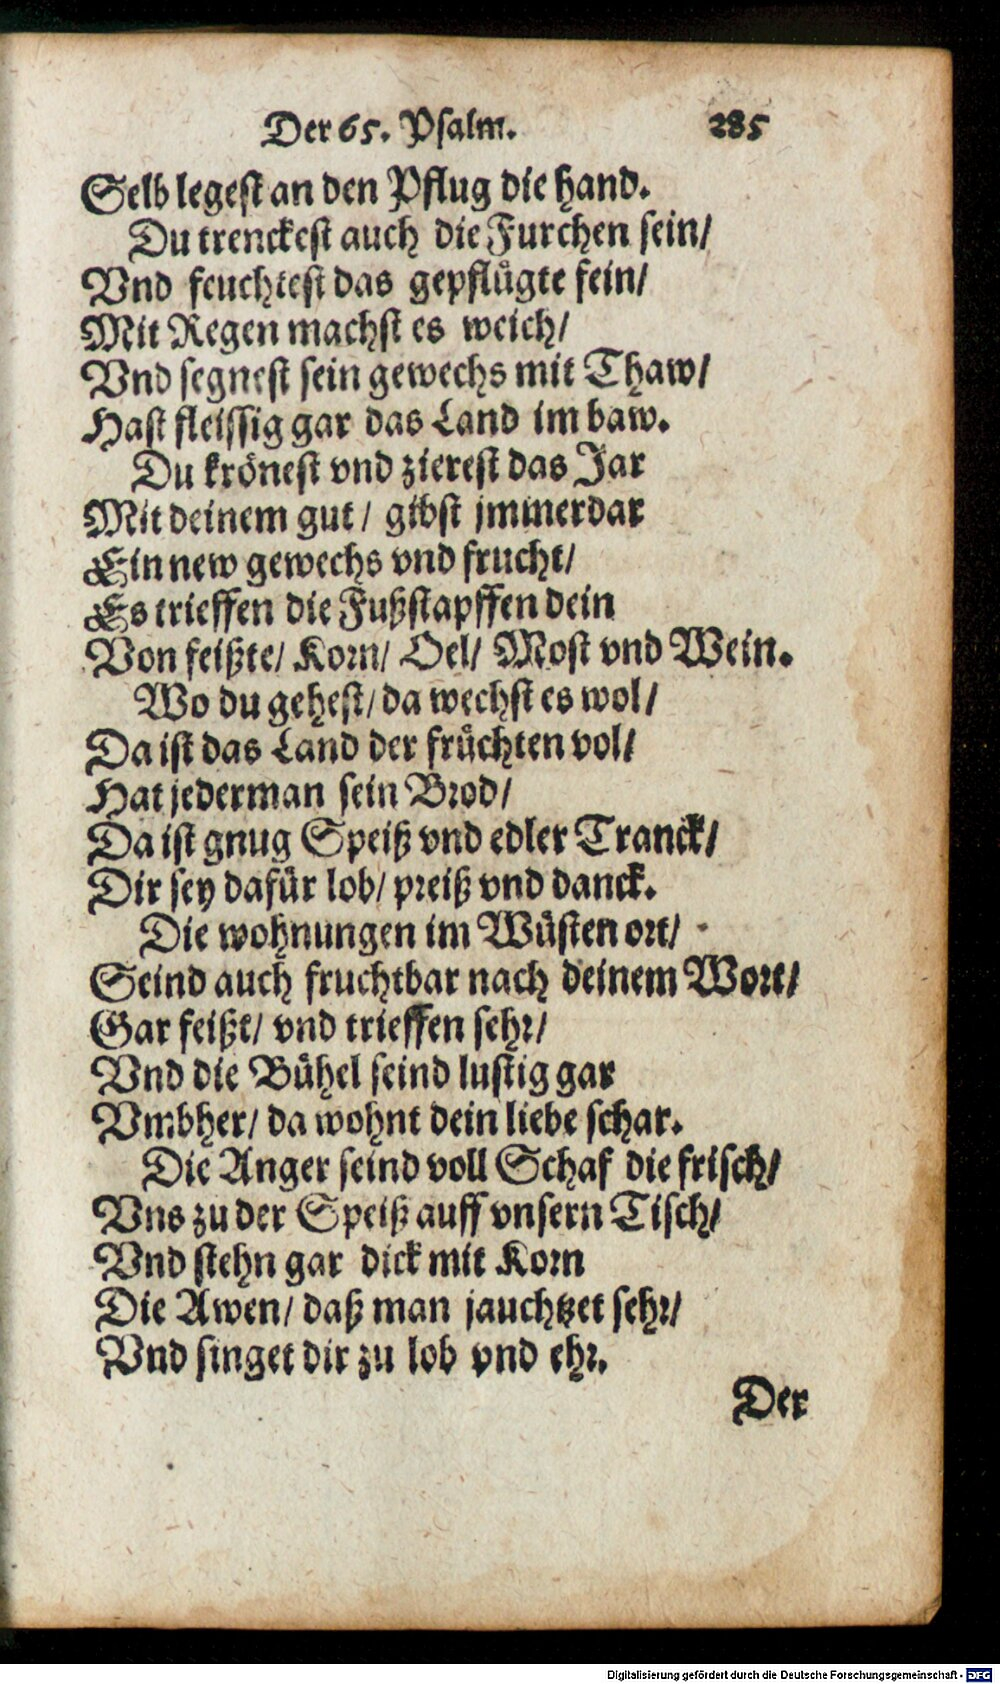 Der 65. Psalm. 285
Selb legest an den Pflug die hand.
Du trenckest auch die Furchen sein/
Vnd feuchtest das gepflügte fein/
Mit Regen machst es weich/
Vnd segnest sein gewechs mit Thaw/
Hast fleissig gar das Land im baw.
Du krönest vnd zierest das Jar
Mit deinem gut/ gibst jmmerdar
Ein new gewechs vnd frucht/
Es trieffen die Fußstapffen dein
Von feißte/ Korn/ Oel/ Most vnd Wein.
Wo du gehest/ da wechst es wol/
Da ist das Land der früchten vol/
Hat jederman sein Brod/
Da ist gnug Speiß vnd edler Tranck/
Dir sey dafür lob/ preiß vnd danck.
Die wohnungen im Wüsten ort/
Seind auch fruchtbar nach deinem Wort/
Gar feißt/ vnd trieffen sehr/
Vnd die Bühel seind lustig gar
Vmbher/ da wohnt dein liebe schar.
Die Anger seind voll Schaf die frisch/
Vns zu der Speiß auff vnsern Tisch/
Vnd stehn gar dick mit Korn
Die Awen/ daß man jauchtzet sehr/
Vnd singet dir zu lob vnd ehr.
Der
Digitalisierung gefördert durch die Deutsche Forschungsgemeinschaft - DFG